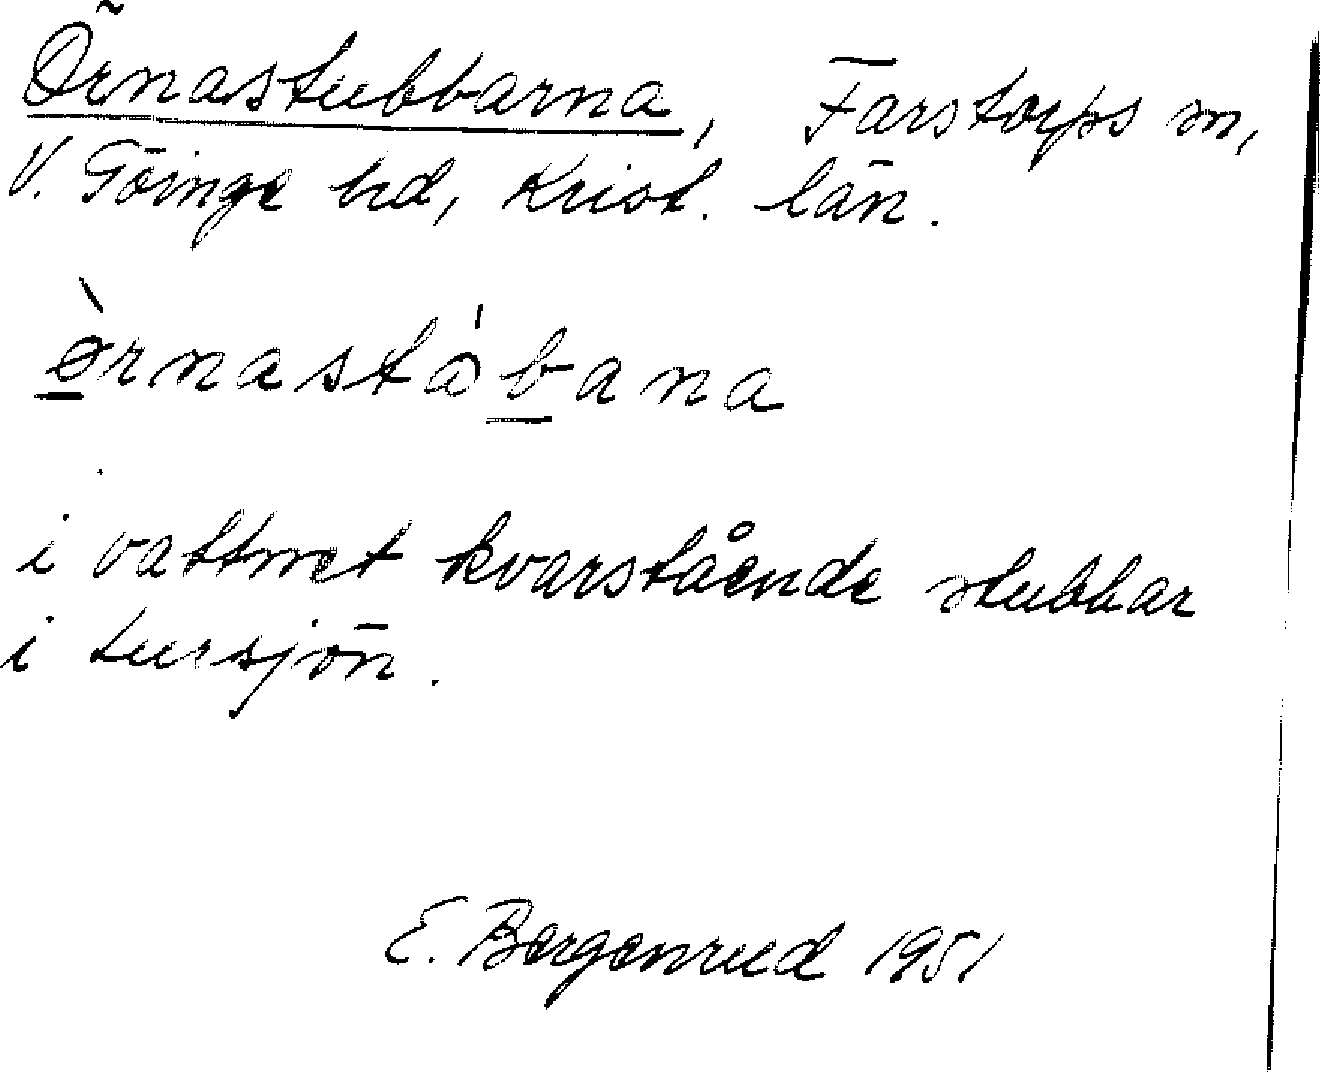 Örnastubbarna, Farstorps sn,
V. Göinge hd, Krist. län.
i vattnet kvarstående stubbar
i Lursjön.
E. Bergenrud 1951